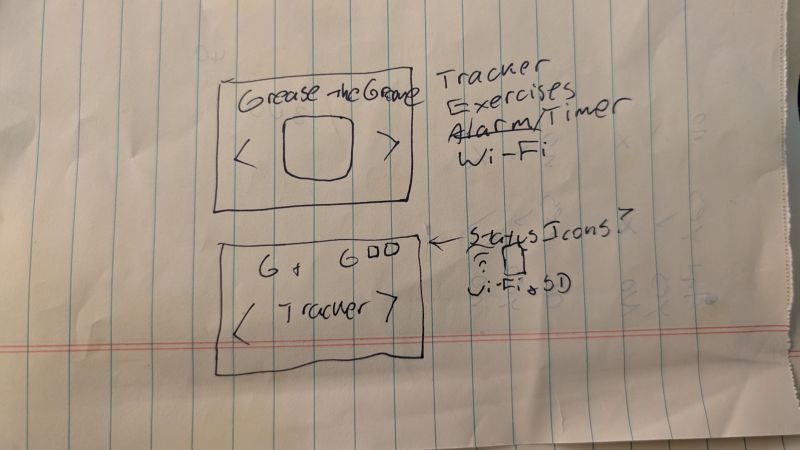 Grease the Groove
< >
Tracker
Exercises
Alarm/Timer
Wi-Fi
G + G
< Tracker >
Status Icons?
Wi-Fi & SD